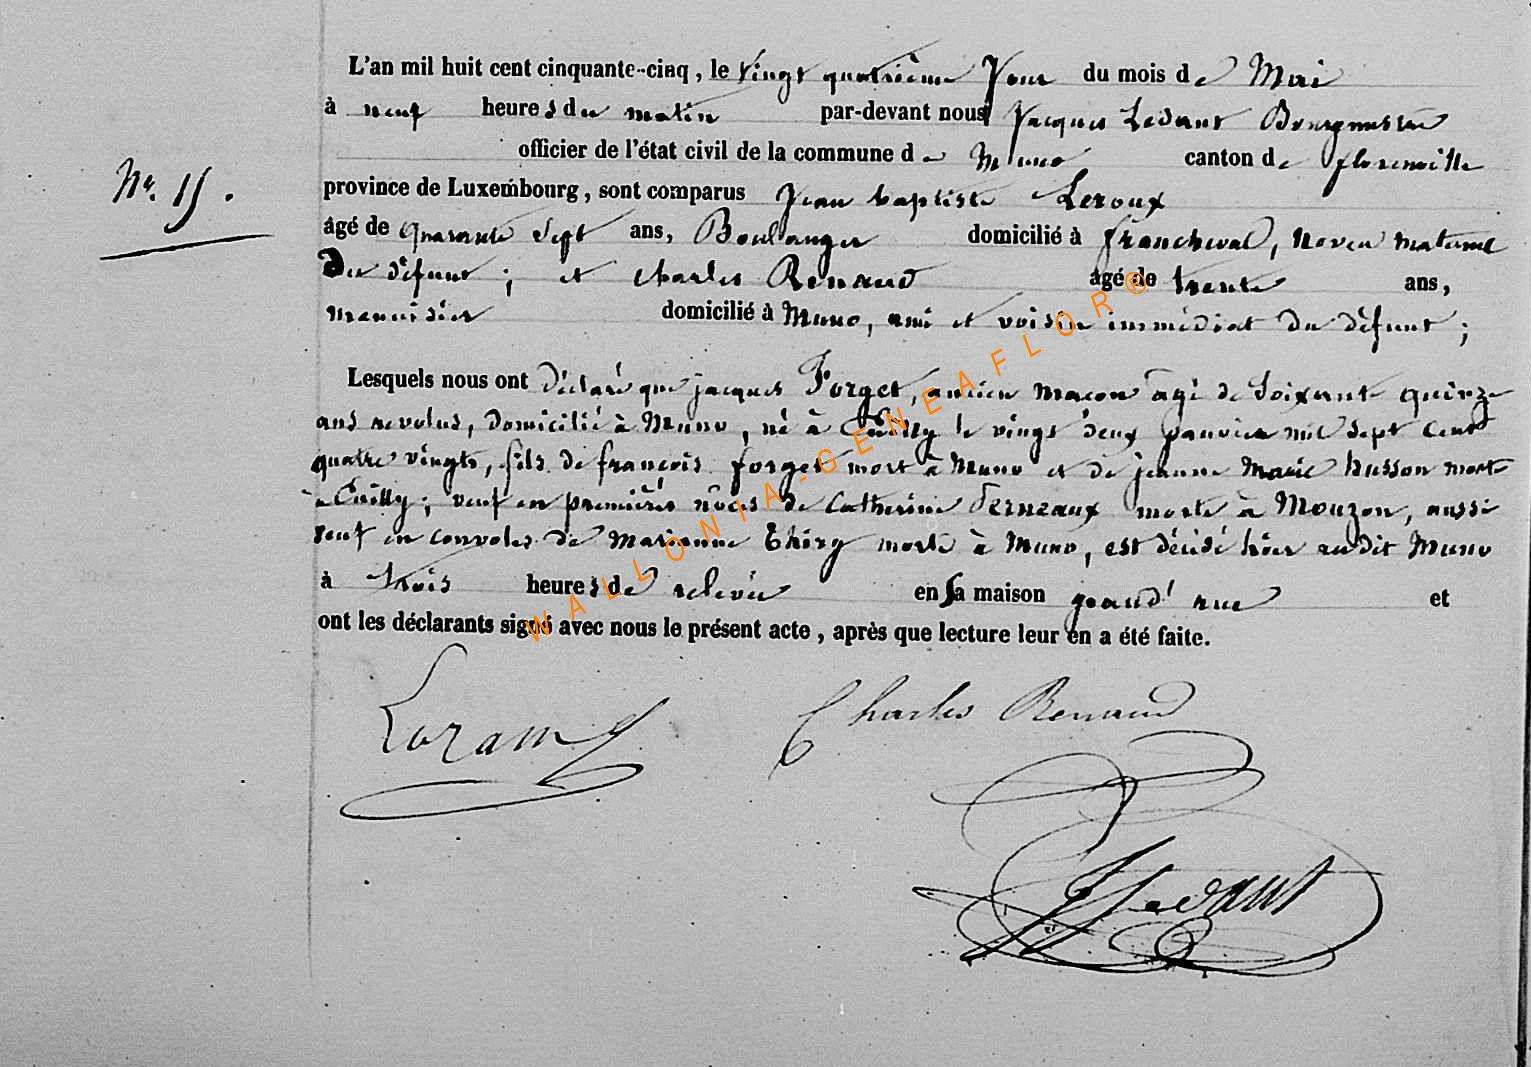 L'an mil huit cent cinquante-cinq, le vingt quatrième jour du mois de Mai
à neuf heures du matin par-devant nous Jacques Ledant Bourgmestre
officier de l'état civil de la commune de Muno canton de florenville
Nr. 15.
province de Luxembourg, sont comparus Jean baptiste Leroux
âgé de quarante sept ans, Boulanger domicilié à francheval, neveu maternel
du défunt; et charles Renaud âgé de trente ans,
menuisier domicilié à Muno, ami et voisin immédiat du défunt;
Lesquels nous ont déclaré que jacques Forget, ancien maçon agé de soixante quinze
ans revolus, domicilié à Muno, né à Cuilly le vingt deux janvier mil sept cent
quatre vingts, fils de françois forget mort à Muno et de jeanne Marie husson morte
à Cuilly; veuf en premières nôces de Catherine morte à Mouzon, aussi
veuf en convoles de Marianne Thiry morte à Muno, est décédé hier audit Muno
à trois heures de relevée en sa maison grand' rue et
ont les déclarants signé avec nous le présent acte, après que lecture leur en a été faite.
Charles Renaud
Ledant
WALLONIA-GENEAFLOR®